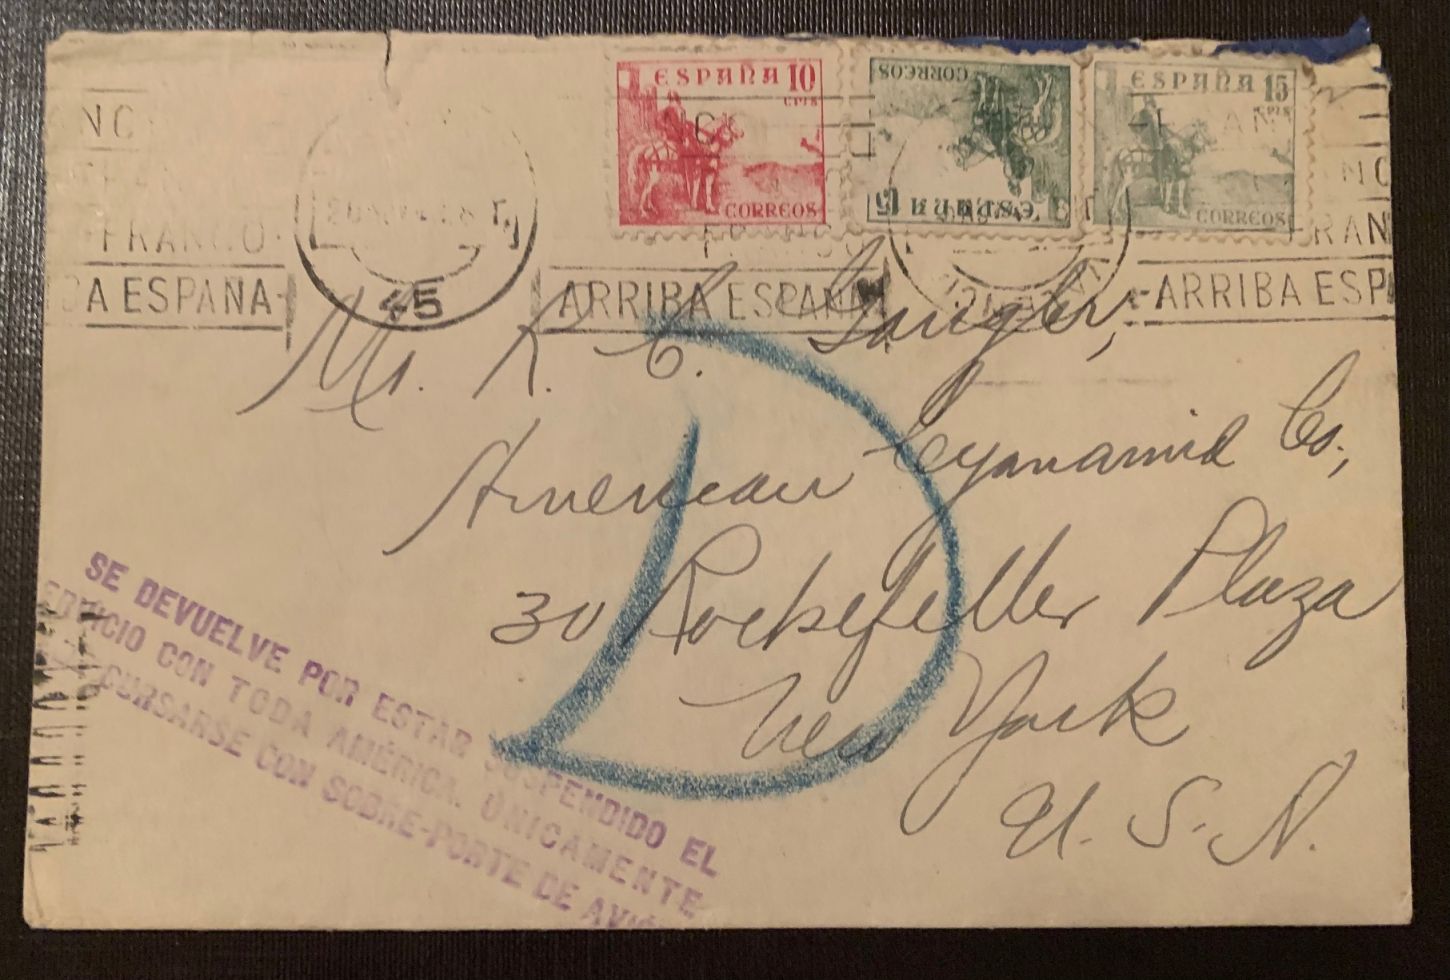 ESPAÑA 10
CTMS
CORREOS
CORREOS
ESPAÑA 15
ESPAÑA 15
CTMS
CORREOS
FRANCO
ARRIBA ESPAÑA
45
ARRIBA ESPAÑA
ARRIBA ESP
Mr. K. C.
American Cyanamid Co.,
30 Rockefeller Plaza
New York
U. S. A.
D
SE DEVUELVE POR ESTAR SUSPENDIDO EL
SERVICIO CON TODA AMÉRICA. ÚNICAMENTE
CURSARSE CON SOBRE-PORTE DE AVIÓN